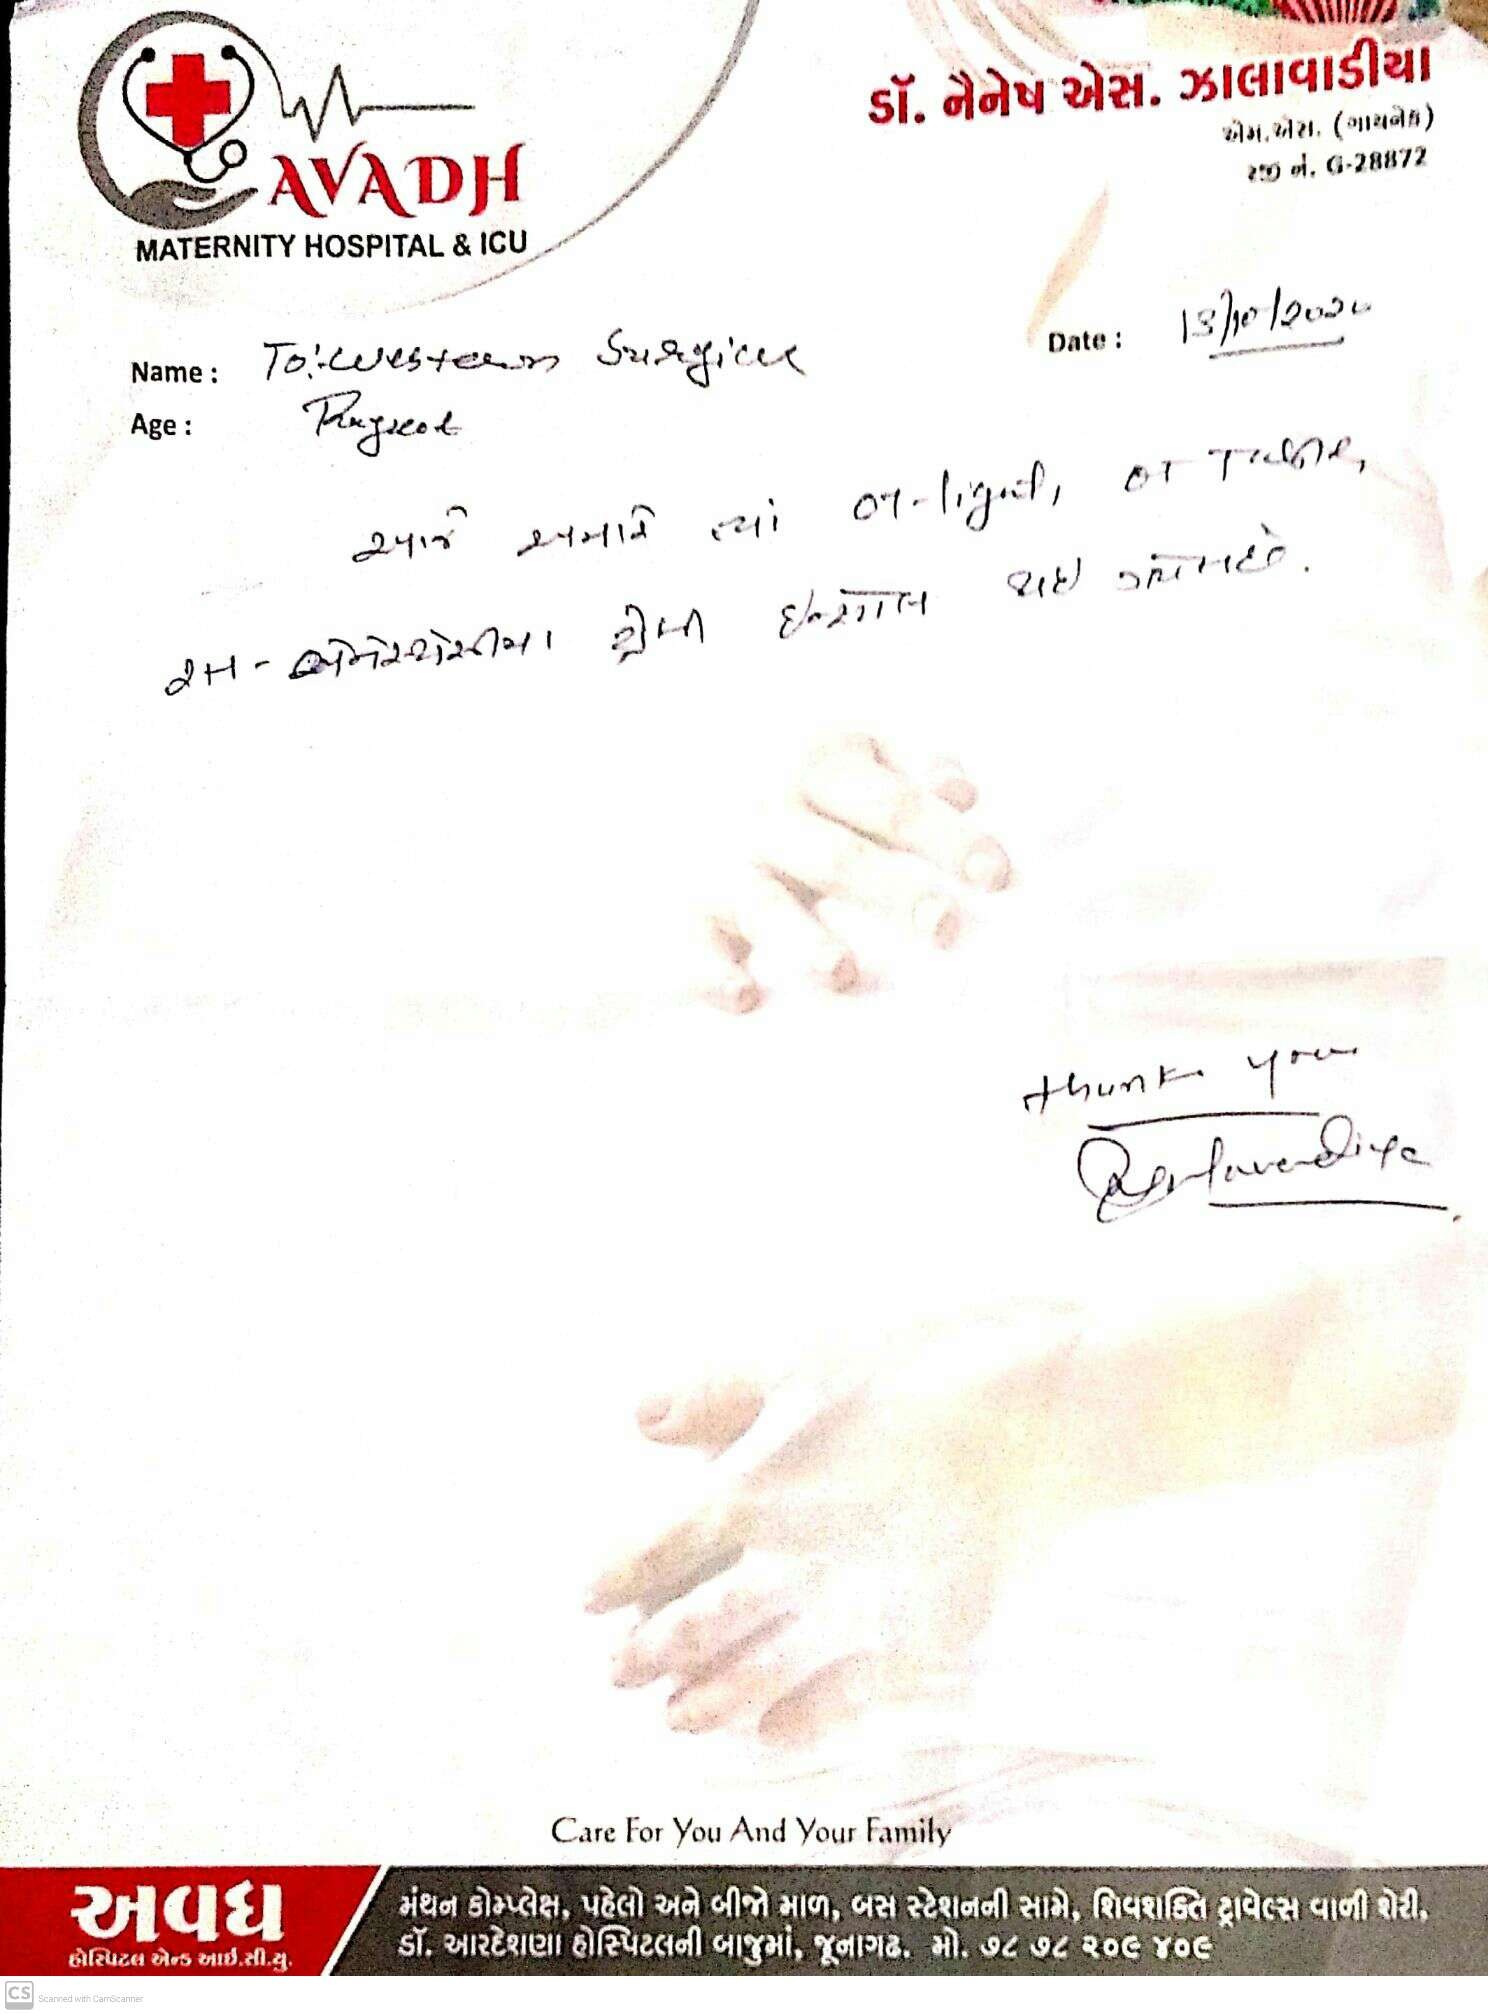 AVADH
MATERNITY HOSPITAL & ICU
ડૉ. નૈનેષ એસ. ઝાલાવાડીયા
એમ.એસ. (ગાયનેક)
રજી નં. G-28872
Date :
Name : To:- Western Surgical
Age : Rajkot
આજે અમારે ત્યાં OT-light, OT
થઇ
thank you
Care For You And Your Family
અવધ
હોસ્પિટલ એન્ડ આઇ.સી.યુ.
મંથન કોમ્પ્લેક્ષ, પહેલો અને બીજો માળ, બસ સ્ટેશનની સામે, શિવશક્તિ ટ્રાવેલ્સ વાળી શેરી,
ડૉ. આરદેશણા હોસ્પિટલની બાજુમાં, જૂનાગઢ. મો. ૭૮ ૭૮ ૨૦૯ ૪૦૯
CS Scanned with CamScanner